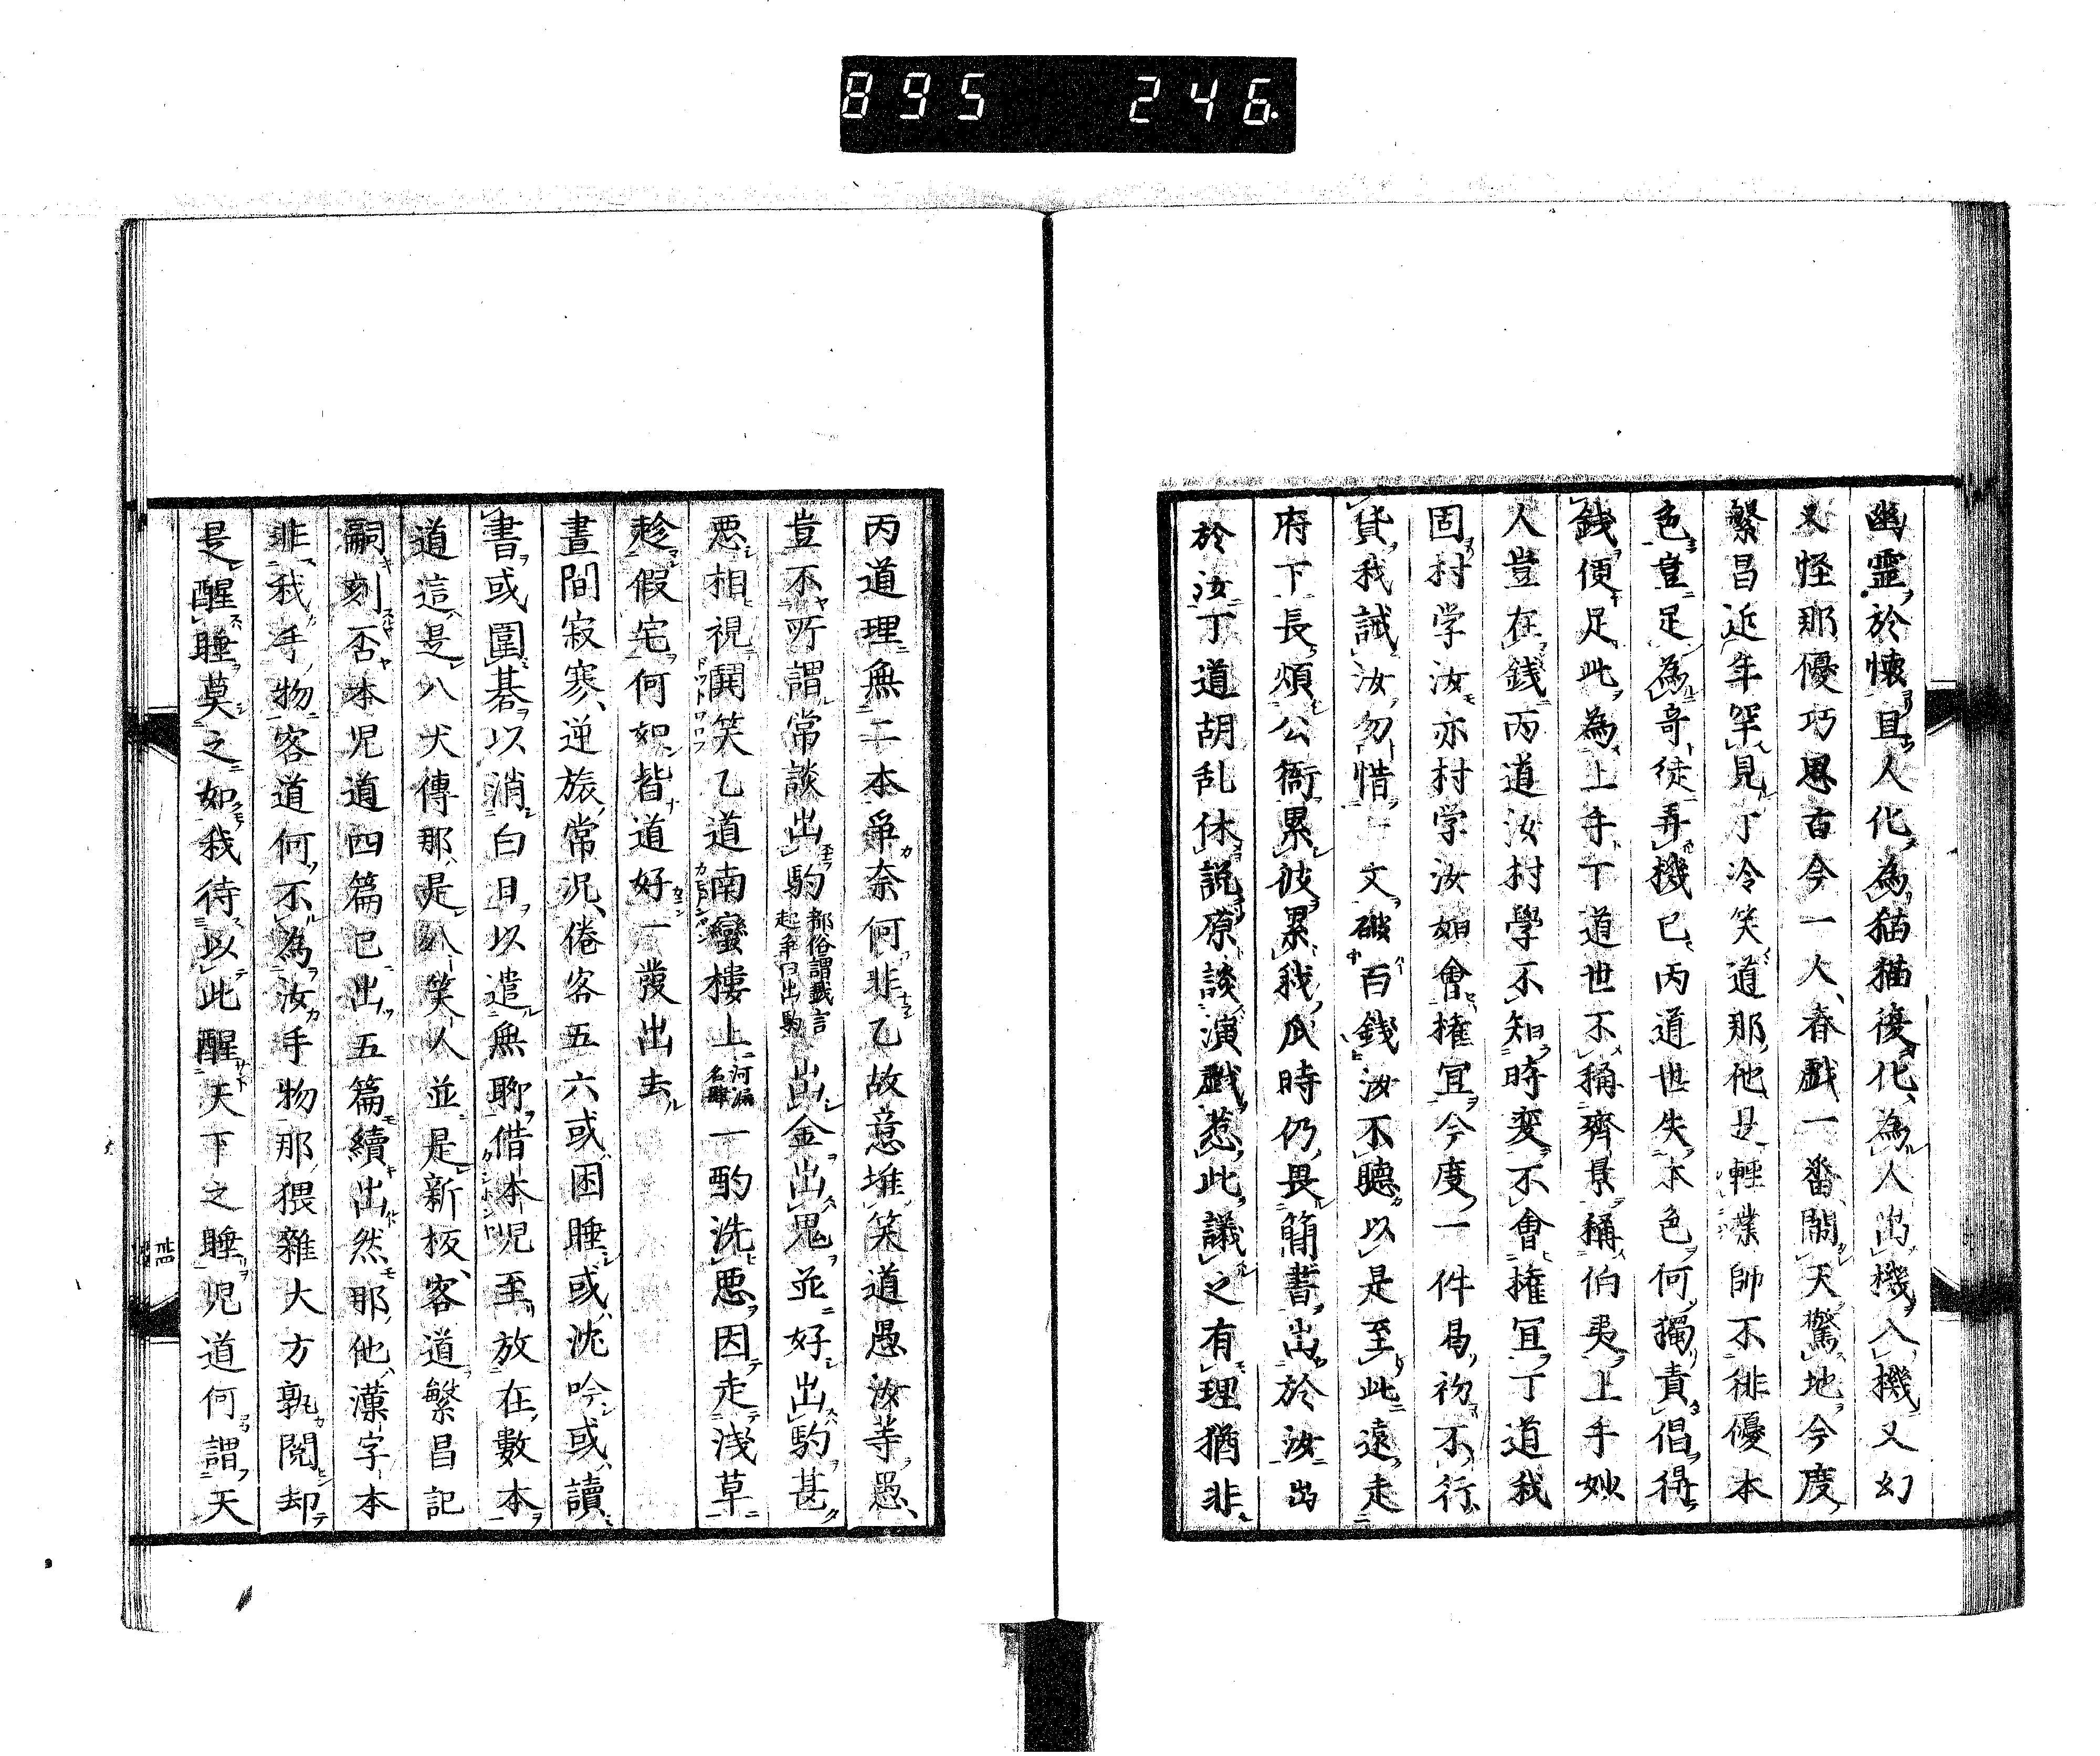 895 246
幽霊於懐且人化為猫猫復化為人出機入機又幻
又怪那優巧思百今一人春戯一番閙天驚地今度
繁昌近年罕見丁冷笑道那他是軽業師不俳優本
色豈足為奇徒弄機已丙道世失本色何獨責倡得
銭便足此為上手丁道世不稱齊景稱伯夷上手妙
人豈在銭丙道汝村學不知時変不會権宜丁道我
固村学汝亦村学汝如會権宜今度一件曷初不行
貸我誡汝勿惜一文破百銭汝不聽以是至此遠走
府下長煩公衙累彼累我瓜時仍畏簡書出於汝出
於汝丁道胡乱休説原談演戯惹此議之有理猶非
丙道理無二本爭奈何非乙故意堆笑道愚汝等愚
豈不所謂常談出駒都俗謂戯言起争曰出駒出金出鬼並好出駒甚
悪相視鬨笑乙道南蠻樓上河漏名肆一酌洗悪因走浅草
趁假宅何如皆道好一發出去
晝間寂寥逆旅常況倦客五六或困睡或沈吟或讀
書或圍碁以消白日以遣無聊借本児至放在數本
道這是八犬傳那是八笑人並是新板客道繁昌記
嗣刻否本児道四篇已出五篇續出然那他漢字本
非我手物客道何不為汝手物那猥雜大方孰閲却
是醒睡莫之如我待以此醒天下之睡児道何謂天